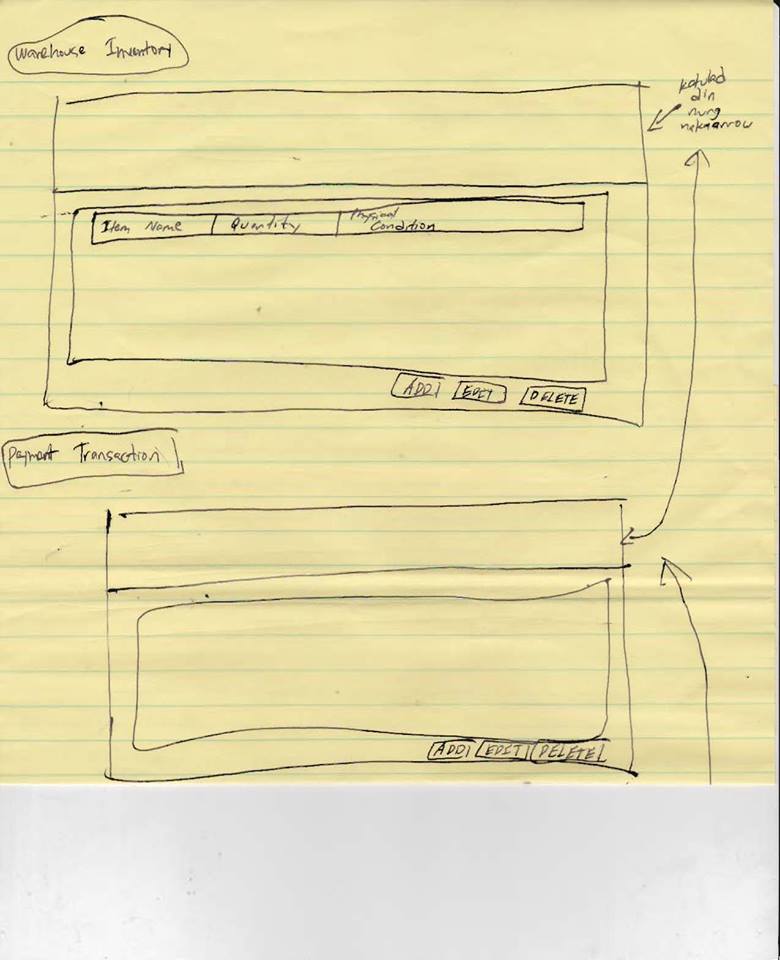 Warehouse Inventory
katulad
din
nung
nakaarrow
Item Name Quantity Physical
Condition
ADD EDIT DELETE
Payment Transaction
ADD EDIT DELETE